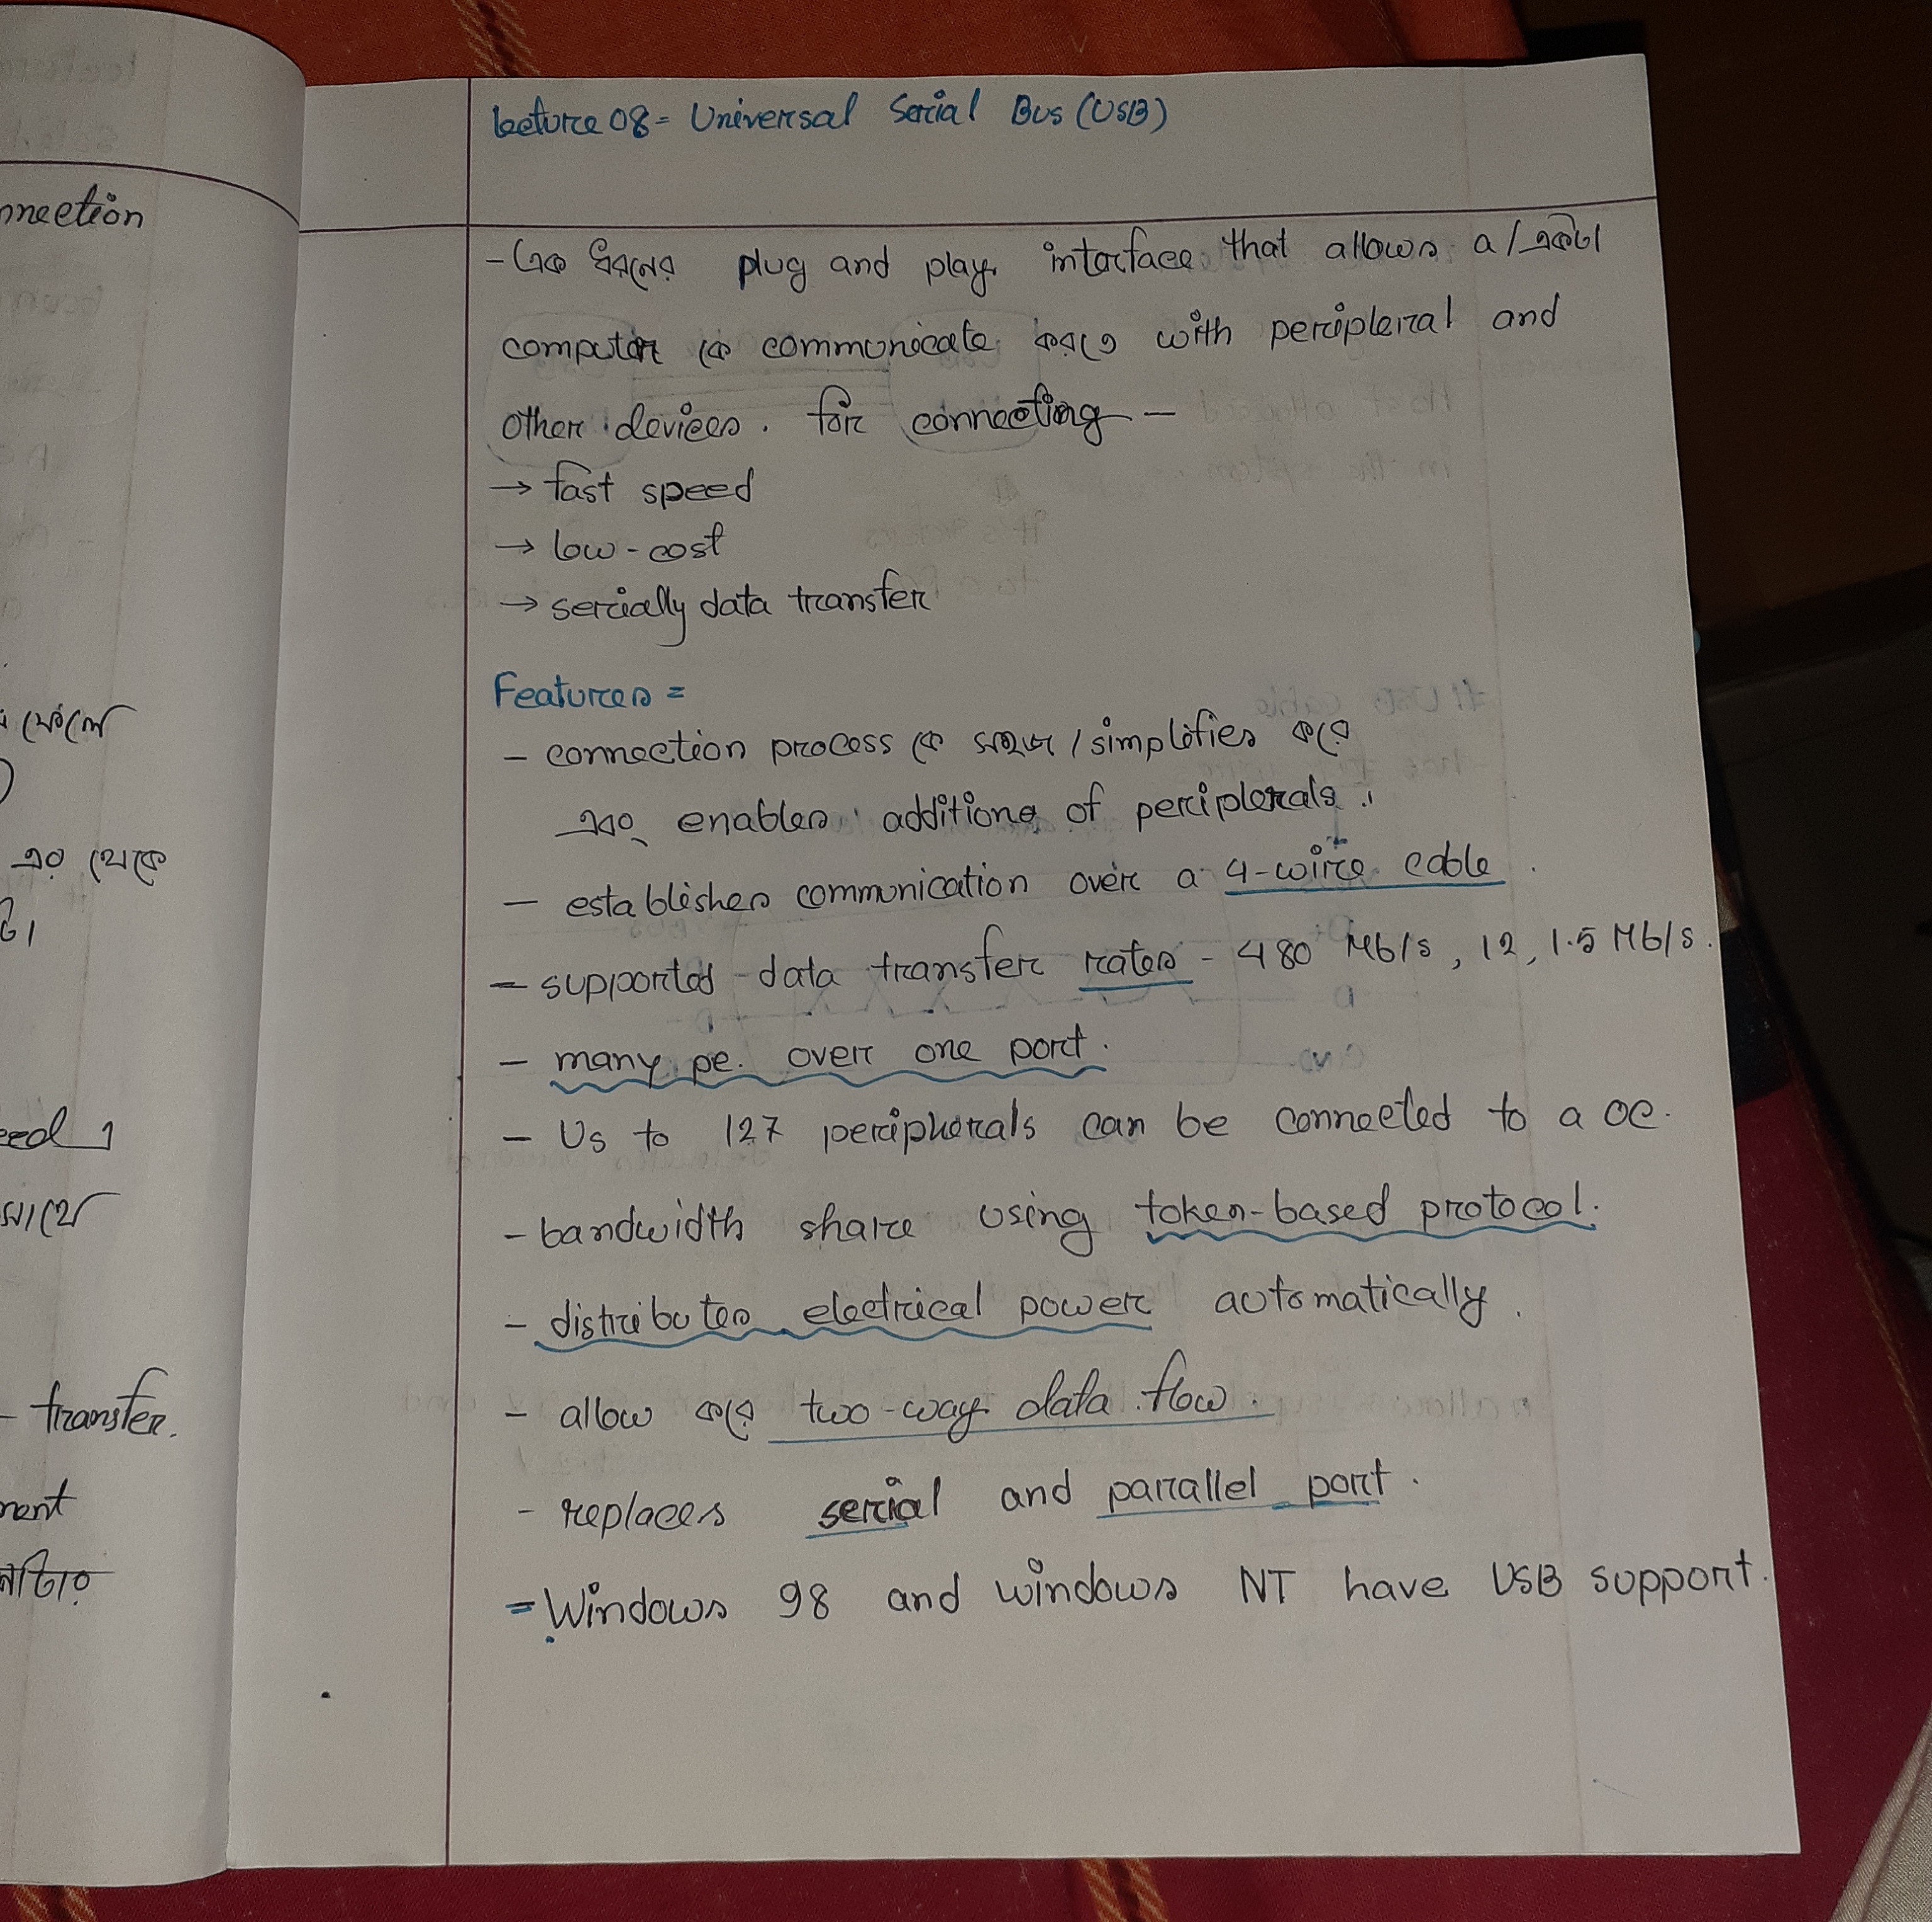 nnection
ফেলে
এর থেকে
টা।
eed
সাথে
- transfer.
ment
Lecture 08 = Universal Serial Bus (USB)
- এক ধরনের plug and play interface that allows a/একটা
computer কে communicate করতে with peripleral and
other devices. for connecting —
→ fast speed
→ low-cost
→ serially data transfer
Features =
- connection process কে সহজ/simplifies করে
এবং enables additions of periplerals.
- establishes communication over a 4-wire cable.
- supported data transfer rates - 480 Mb/s, 12, 1.5 Mb/s.
- many pe. over one port.
- Us to 127 peripherals can be connected to a oc.
- bandwidth share using token-based protocol.
- distributes electrical power automatically.
- allow করে two-way data flow.
- replaces serial and parallel port.
= Windows 98 and windows NT have USB support.